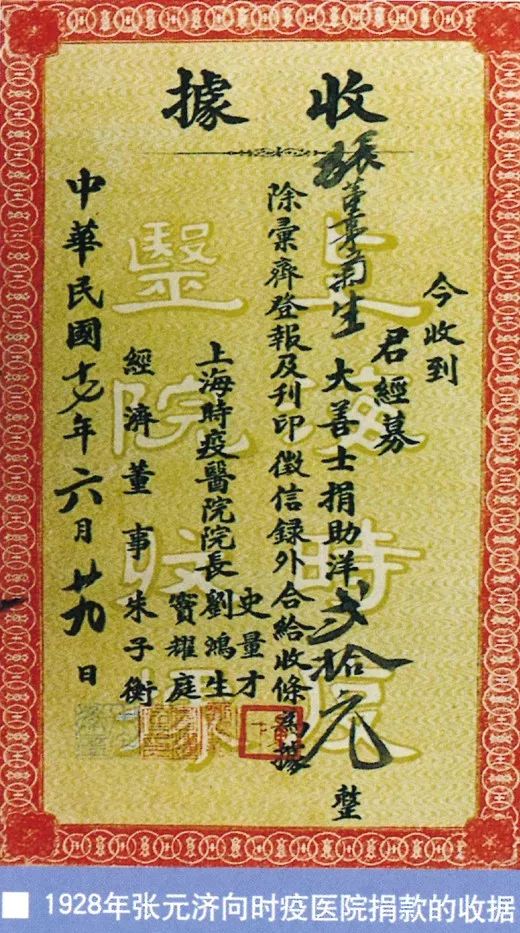 收據
今收到
君經募
張董事菊生 大善士捐助洋弐拾元整
除彙齊登報及刊印徵信録外合給收條為據
上海時疫醫院院長
史量才
劉鴻生
竇耀庭
經濟董事 朱子衡
中華民國十七年六月廿九日
上海時疫
醫院收據
1928年张元济向时疫医院捐款的收据